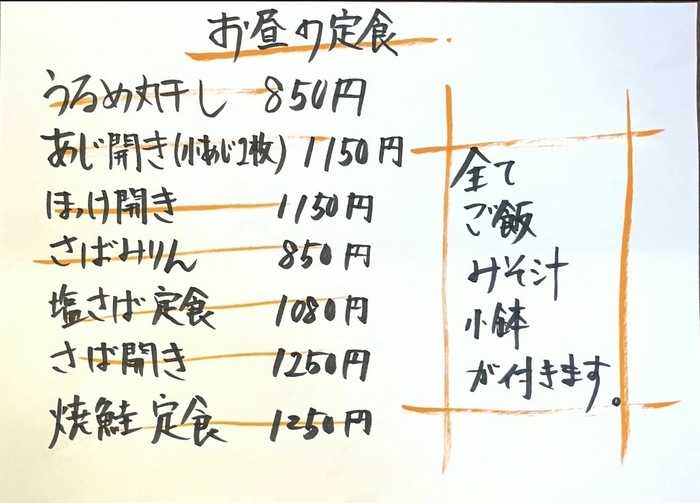 お昼の定食
うるめ丸干し 850円
あじ開き(小あじ2枚) 1150円
ほっけ開き 1150円
さばみりん 850円
塩さば定食 1080円
さば開き 1250円
焼鮭定食 1250円
全て
ご飯
みそ汁
小鉢
が付きます。